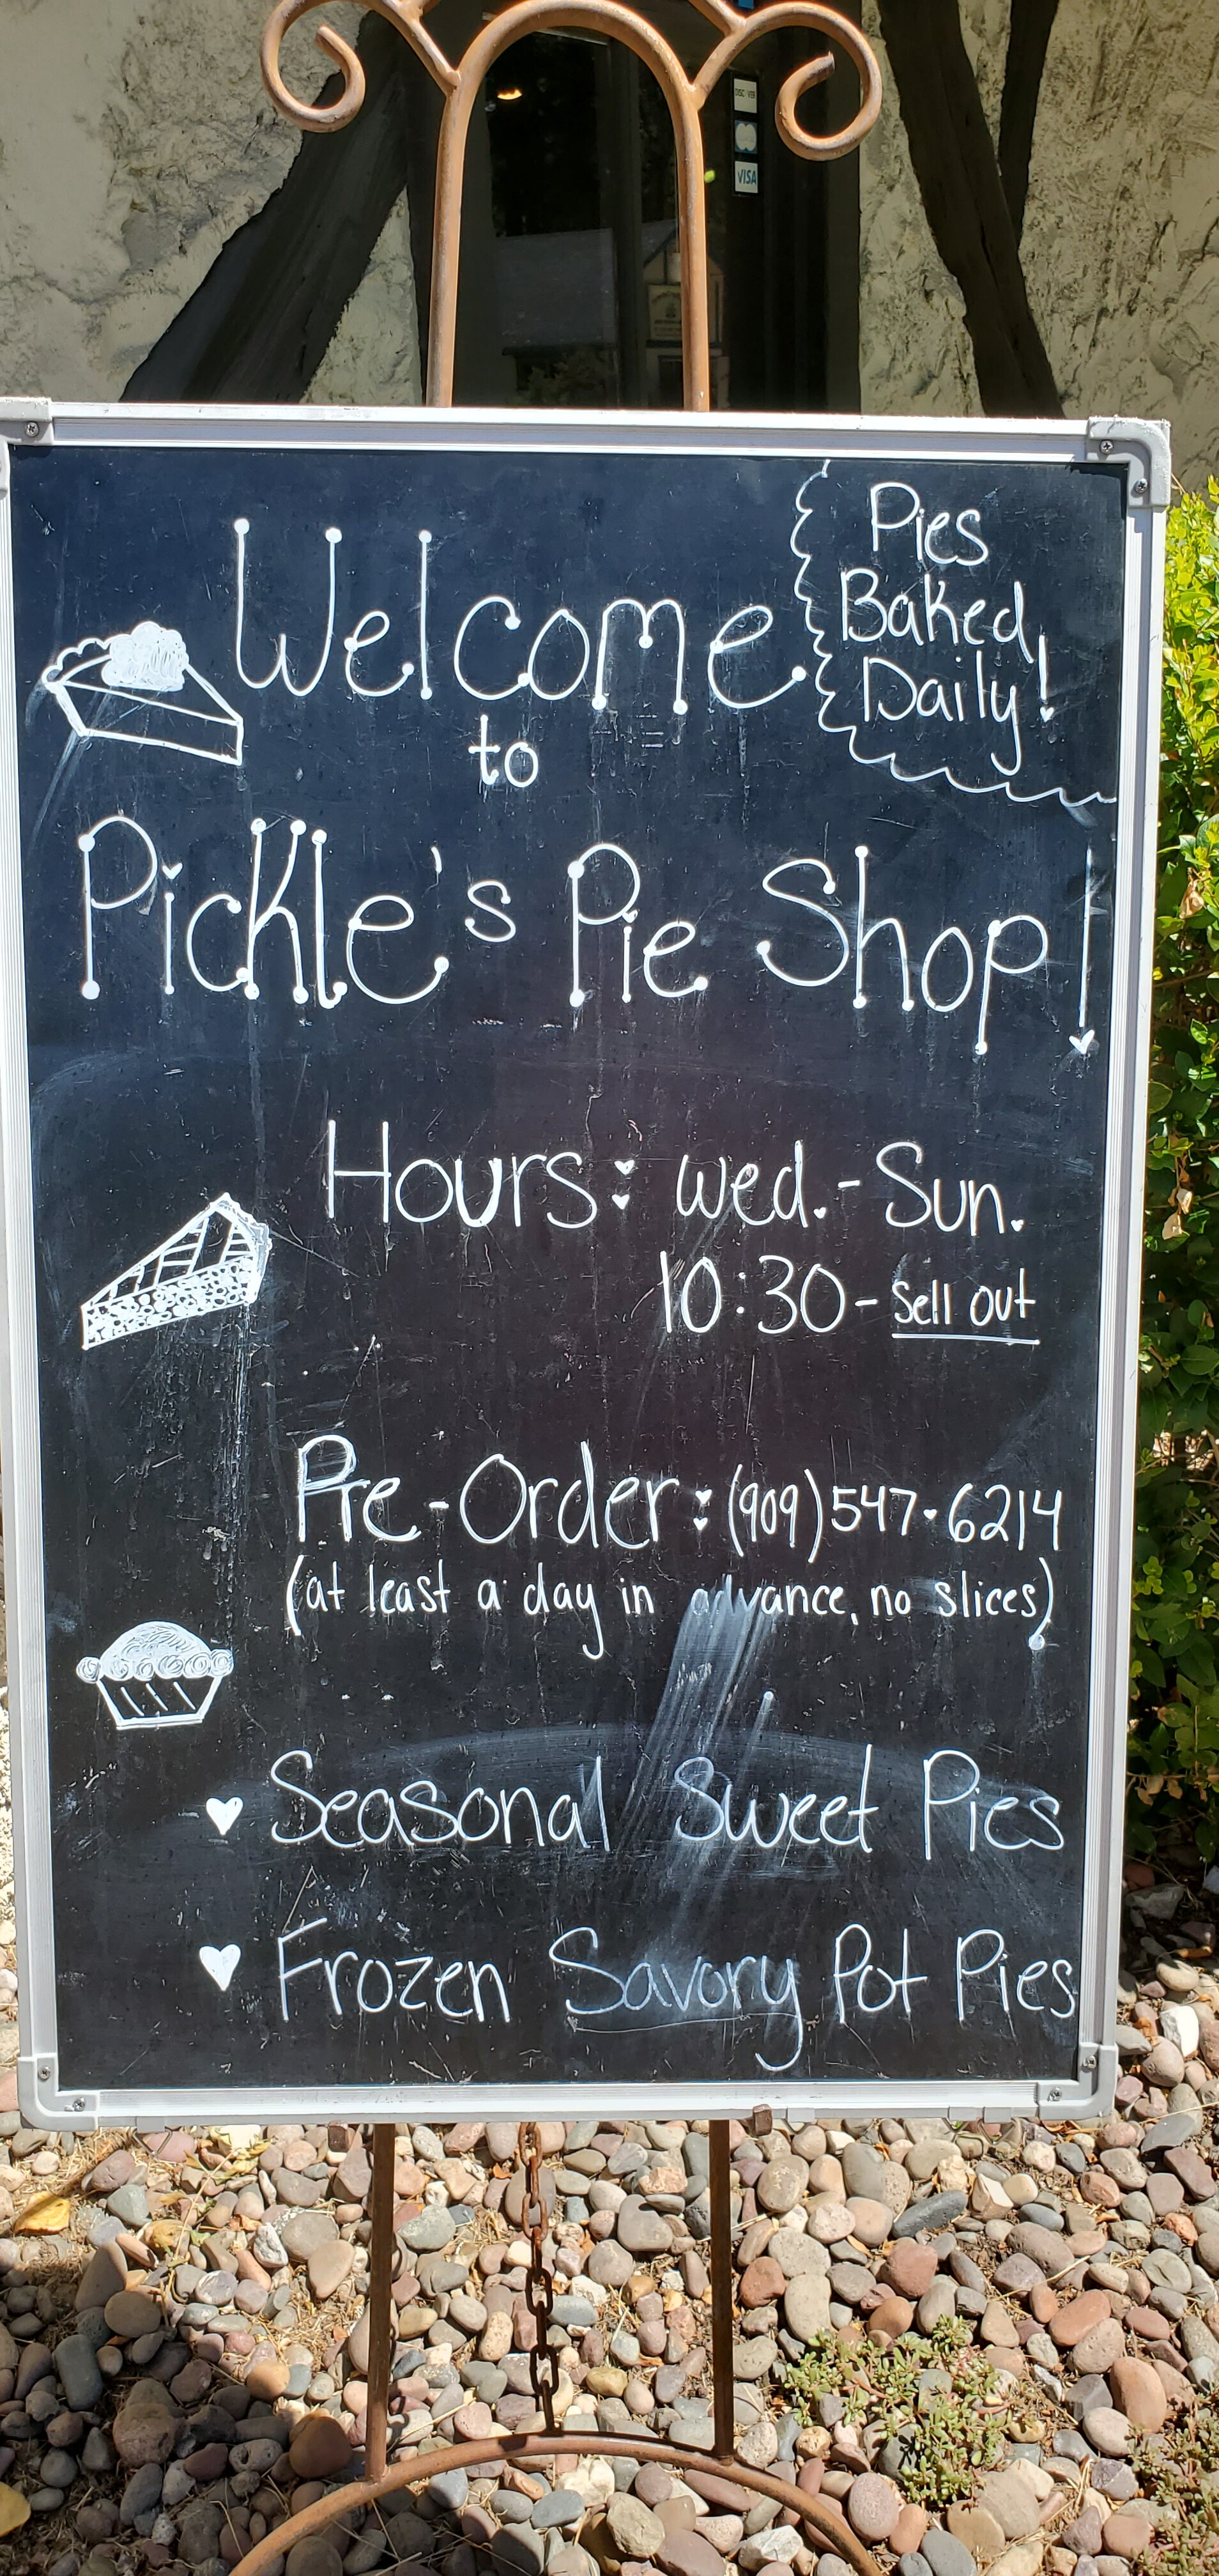 DISCOVER
VISA
Welcome
to
Pickle's Pie Shop!
Pies
Baked
Daily!
Hours: Wed. - Sun.
10:30 - Sell out
Pre-Order: (909) 547-6214
(at least a day in advance, no slices)
Seasonal Sweet Pies
Frozen Savory Pot Pies